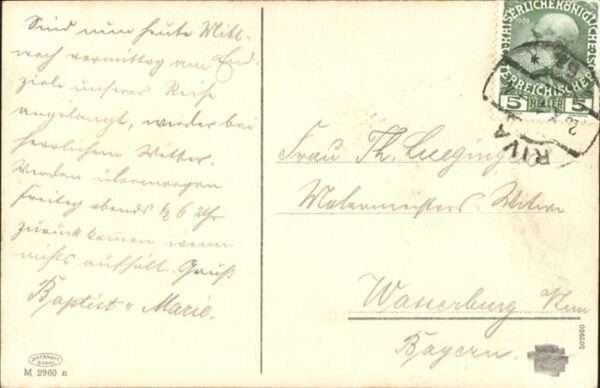 Sind nun heute Mitt-
woch vormittag am End-
ziele unserer Reise
angelangt, wieder bei
herrlichem Wetter.
Werden übermorgen
Freitag abends ½ 6 Uhr
zurück kommen wenn
nichts aufhält. Gruß
Baptist u Marie.
KAISERLICHE KÖNIGLICHE
ÖSTERREICHISCHE
5 HELLER 5
1908
RIVA
Frau Th.
Malermeisters Witwe
Wasserburg
Bayern.
M 2960 n